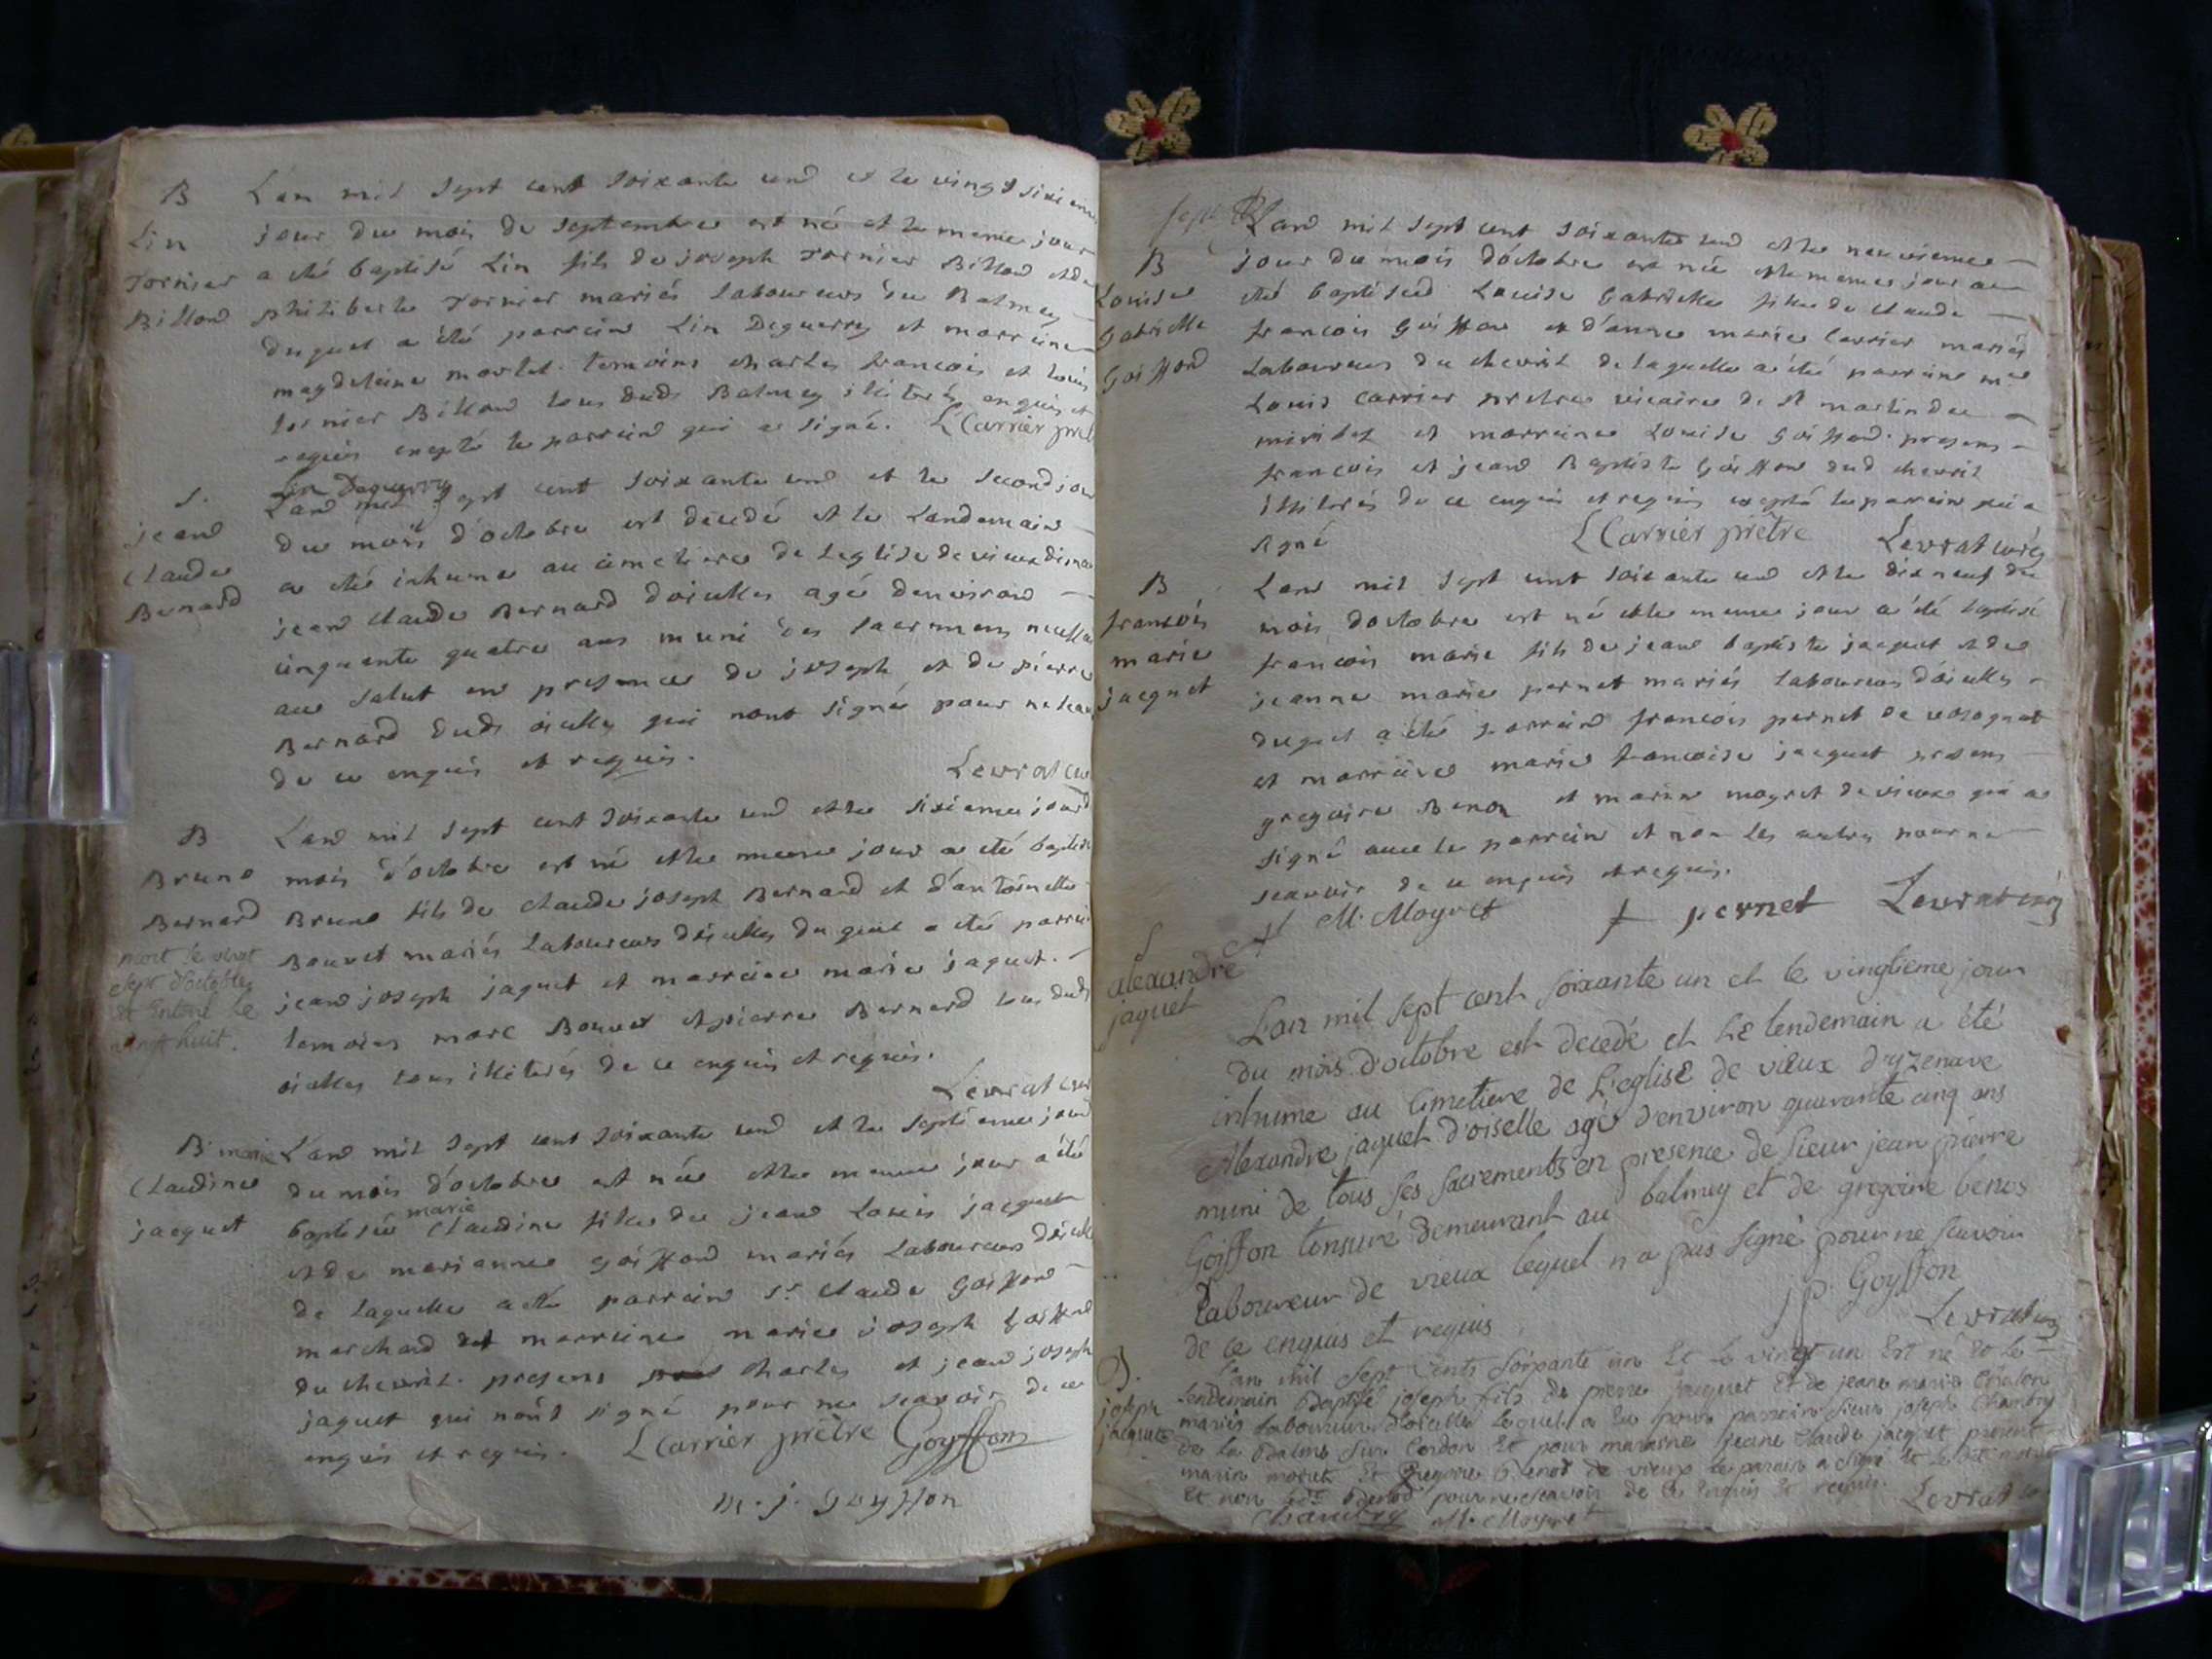 B
Lin
Tornier
Billon
L'an mil sept cent soixante und et le vingt sixieme
jour du mois de septembre est né et le meme jour
a eté baptisé Lin fils de joseph Tornier Billon et de
philiberte Tornier mariés laboureurs du Balmey
duquel a été parrein Lin Deguerry et marreine
magdeleine mortel. temoins charles francois et louis
tornier Billon tous dudt Balmey illiterés enquis et
requis excepté le parreind qui a signé. LCarrier pret
Lin Deguerry
S.
jean
Claude
Bernard
L'and mil sept cent soixante und et le second jour
du mois d'octobre est decedé et le Landemain
a eté inhumé au cimetiere de leglise de vieux
jean claude Bernard doiselles agé denviron
cinquante quatre ans muni des sacremens
au salut en presence de joseph et de pierre
Bernard dudt oiselles qui nont signé pour ne
de ce enquis et requis.
Levrat cu
B
Bruno
Bernard
mort le vint
sept d'octobre
et Enteré le
vingt huit.
L'and mil sept cent soixante und et le sixieme jour
mois d'octobre est né et le meme jour a eté baptisé
Bruno fils de claude joseph Bernard et d'antoinette
Bouvet mariés Laboureurs doiselles duquel a eté parrein
jean joseph jaquet et marreine marie jaquet.
temoins marc Bouvet et pierre Bernard tous dudt
oiselles tous illiterés de ce enquis et requis.
Levrat cur
B marie
Claudine
jacquet
L'and mil sept cent soixante und et le septieme jour
du mois d'octobre est née et le meme jour a été
marie
baptisée Claudine fille de jean Louis jacquet
et de marianne goiffond mariés Laboureurs
de laquelle a eté parrein Sr claude Goiffon
marchand et marreine marie joseph Goiffond
du chevril. presens charles et jean joseph
jaquet qui nont signé pour ne scavoir de ce
enquis et requis. LCarrier prêtre Goyffon
m. j. Goyffon
B
Louise
Gabrielle
Goiffond
L'and mil sept cent soixante und et le neuvieme
jour du mois d'octobre est née et le meme jour a
eté baptisée Louise Gabrielle fille de claude
francois Goiffon et d'anne marie Carrier mariés
Laboureurs du chevril de laquelle a été parrein
Louis Carrier pretre vicaire de St martin du
et marreine Louise Goiffond. presens
francois et jean Baptiste Goiffon dudt chevril
illiterés de ce enquis et requis excepté le parrein qui a
signé LCarrier prêtre Levrat curé
B
francois
marie
jacquet
L'and mil sept cent soixante und et le dix neuf du
mois d'octobre est né et le meme jour a été baptisé
francois marie fils de jean baptiste jacquet et de
jeanne marie pernet mariés laboureurs doiselles
duquel a été parreind francois pernet de
et marreine marie francoise jacquet presens
gregoire Benoz et marin moyret de vieux qui a
signé avec le parrein et non les autres pour ne
scavoir de ce enquis et requis.
M. Moyret f pernet Levrat curé
S
alexandre
jaquet
L'an mil sept cent soixante un et le vingtieme jour
du mois d'octobre est decedé et le lendemain a été
inhumé au cimetiere de L'eglise de vieux d'yzenave
Alexandre jaquet d'oiselle agé d'environ quarante cinq ans
muni de tous ses sacrements en presence de sieur jean pierre
Goiffon tonsuré demeurant au balmey et de gregoire benos
Laboureur de vieux lequel n'a pas signé pour ne scavoir
de ce enquis et requis.
j p. Goyffon
Levrat curé
B.
joseph
jacquet
L'an mil sept cents soixante un Et le vingt un Est né Et le
Lendemain Baptisé joseph fils de pierre jacquet Et de jeane marie
mariés Laboureurs d'oiselle Lequel a Eu pour parrain sieur joseph Chambry
de la Balme sur Cerdon Et pour maraine jeane Claude jacquet present
marin moiret Et Gregoire Benod de vieux le parain a signé Et Ledit moiret
Et non ledt Benod pour ne scavoir de ce Enquis Et requis.
Chambry M. Moyret Levrat